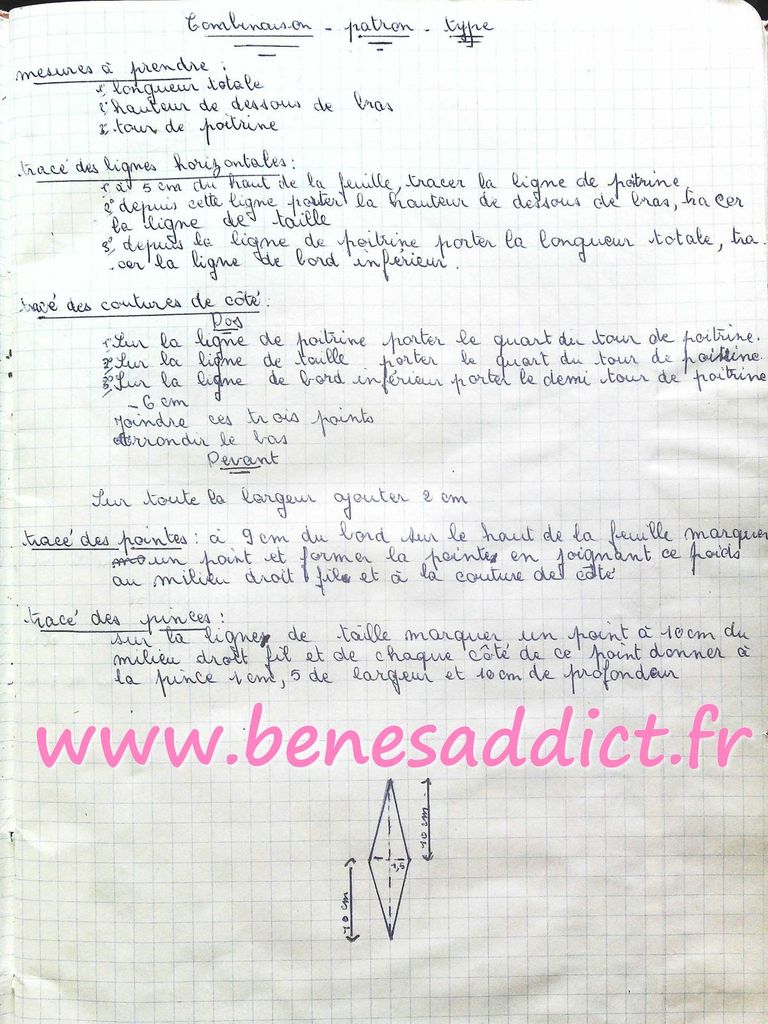 Combinaison - patron - type
mesures à prendre :
1° longueur totale
2° hauteur de dessous de bras
3° tour de poitrine
tracé des lignes horizontales :
1° à 5 cm du haut de la feuille, tracer la ligne de poitrine
2° depuis cette ligne porter la hauteur de dessous de bras, tracer
la ligne de taille
3° depuis la ligne de poitrine porter la longueur totale, tra
cer la ligne de bord inférieur.
tracé des coutures de côté :
Dos
1° Sur la ligne de poitrine porter le quart du tour de poitrine.
2° Sur la ligne de taille porter le quart du tour de poitrine.
3° Sur la ligne de bord inférieur porter le demi tour de poitrine
- 6 cm
Joindre ces trois points
Arrondir le bas
Devant
Sur toute la largeur ajouter 2 cm
tracé des pointes : à 9 cm du bord sur le haut de la feuille marquer
un point et former la pointe en joignant ce poids
au milieu droit fil et à la couture de côté
tracé des pinces :
sur la ligne de taille marquer un point à 10 cm du
milieu droit fil et de chaque côté de ce point donner à
la pince 1 cm, 5 de largeur et 10 cm de profondeur
www.benesaddict.fr
10 cm
1,5
10 cm